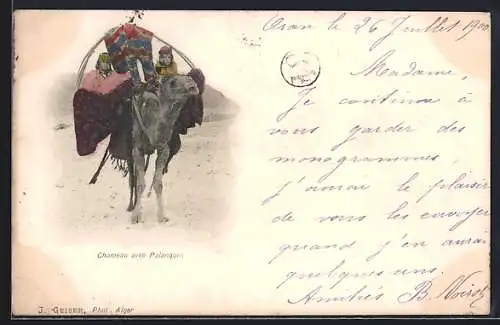 Oran le 26 Juillet 1900
Madame,
Je continue à
vous garder des
monogrammes,
j'aurai le plaisir
de vous les envoyer
quand j'en aurai
quelques uns.
Amitiés B.
Chameau avec Palanquin
J. GEISER, Phot., Alger